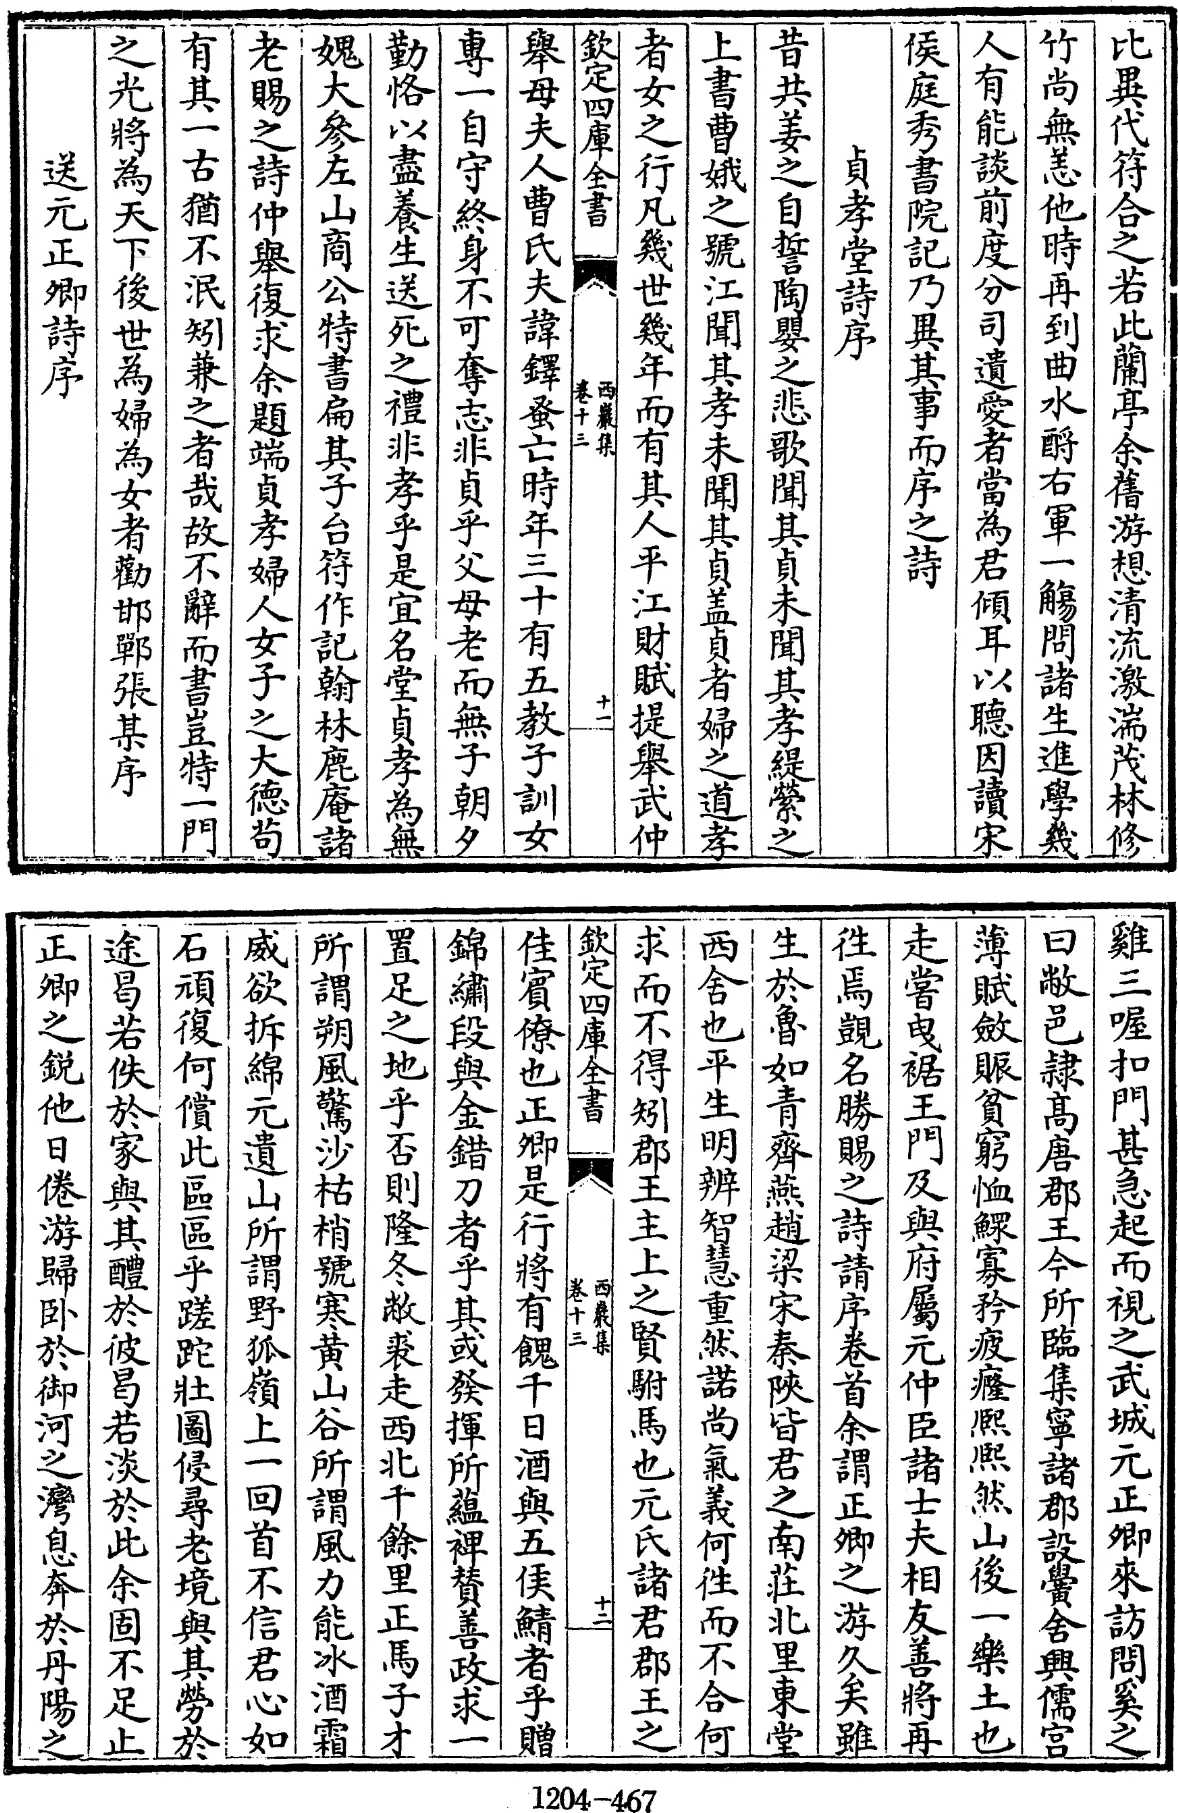 比異代符合之若此蘭亭余舊游想清流激湍茂林修
竹尚無恙他時再到曲水酹右軍一觴問諸生進學幾
人有能談前度分司遺愛者當為君傾耳以聽因讀宋
侯庭秀書院記乃異其事而序之詩
貞孝堂詩序
昔共姜之自誓陶嬰之悲歌聞其貞未聞其孝緹縈之
上書曹娥之號江聞其孝未聞其貞葢貞者婦之道孝
者女之行凡幾世幾年而有其人平江財賦提舉武仲
欽定四庫全書
西巖集
卷十三
十一
舉母夫人曹氏夫諱鐸蚤亡時年三十有五教子訓女
專一自守終身不可奪志非貞乎父母老而無子朝夕
勤恪以盡養生送死之禮非孝乎是宜名堂貞孝為無
媿大參左山商公特書扁其子台符作記翰林鹿庵諸
老賜之詩仲舉復求余題端貞孝婦人女子之大德茍
有其一古猶不泯矧兼之者哉故不辭而書豈特一門
之光將為天下後世為婦為女者勸邯鄲張某序
送元正卿詩序
雞三喔扣門甚急起而視之武城元正卿來訪問奚之
曰敝邑隷髙唐郡王今所臨集寧諸郡設黌舍興儒宫
薄賦斂賑貧窮恤鰥寡矜疲癃熈熈然山後一樂土也
走嘗曳裾王門及與府屬元仲臣諸士夫相友善將再
徃焉覬名勝賜之詩請序卷首余謂正卿之游久矣雖
生於魯如青齊燕趙梁宋秦陜皆君之南莊北里東堂
西舍也平生明辨智慧重然諾尚氣義何徃而不合何
求而不得矧郡王主上之賢駙馬也元氏諸君郡王之
欽定四庫全書
西巖集
卷十三
十二
佳賓僚也正卿是行將有餽千日酒與五侯鯖者乎贈
錦繡段與金錯刀者乎其或發揮所藴裨賛善政求一
置足之地乎否則隆冬敝裘走西北千餘里正馬子才
所謂朔風驚沙枯梢號寒黄山谷所謂風力能冰酒霜
威欲拆綿元遺山所謂野狐嶺上一回首不信君心如
石頑復何償此區區乎蹉跎壯圖侵尋老境與其勞於
途曷若佚於家與其醴於彼曷若淡於此余固不足止
正卿之鋭他日倦游歸卧於御河之灣息奔於丹陽之
1204-467